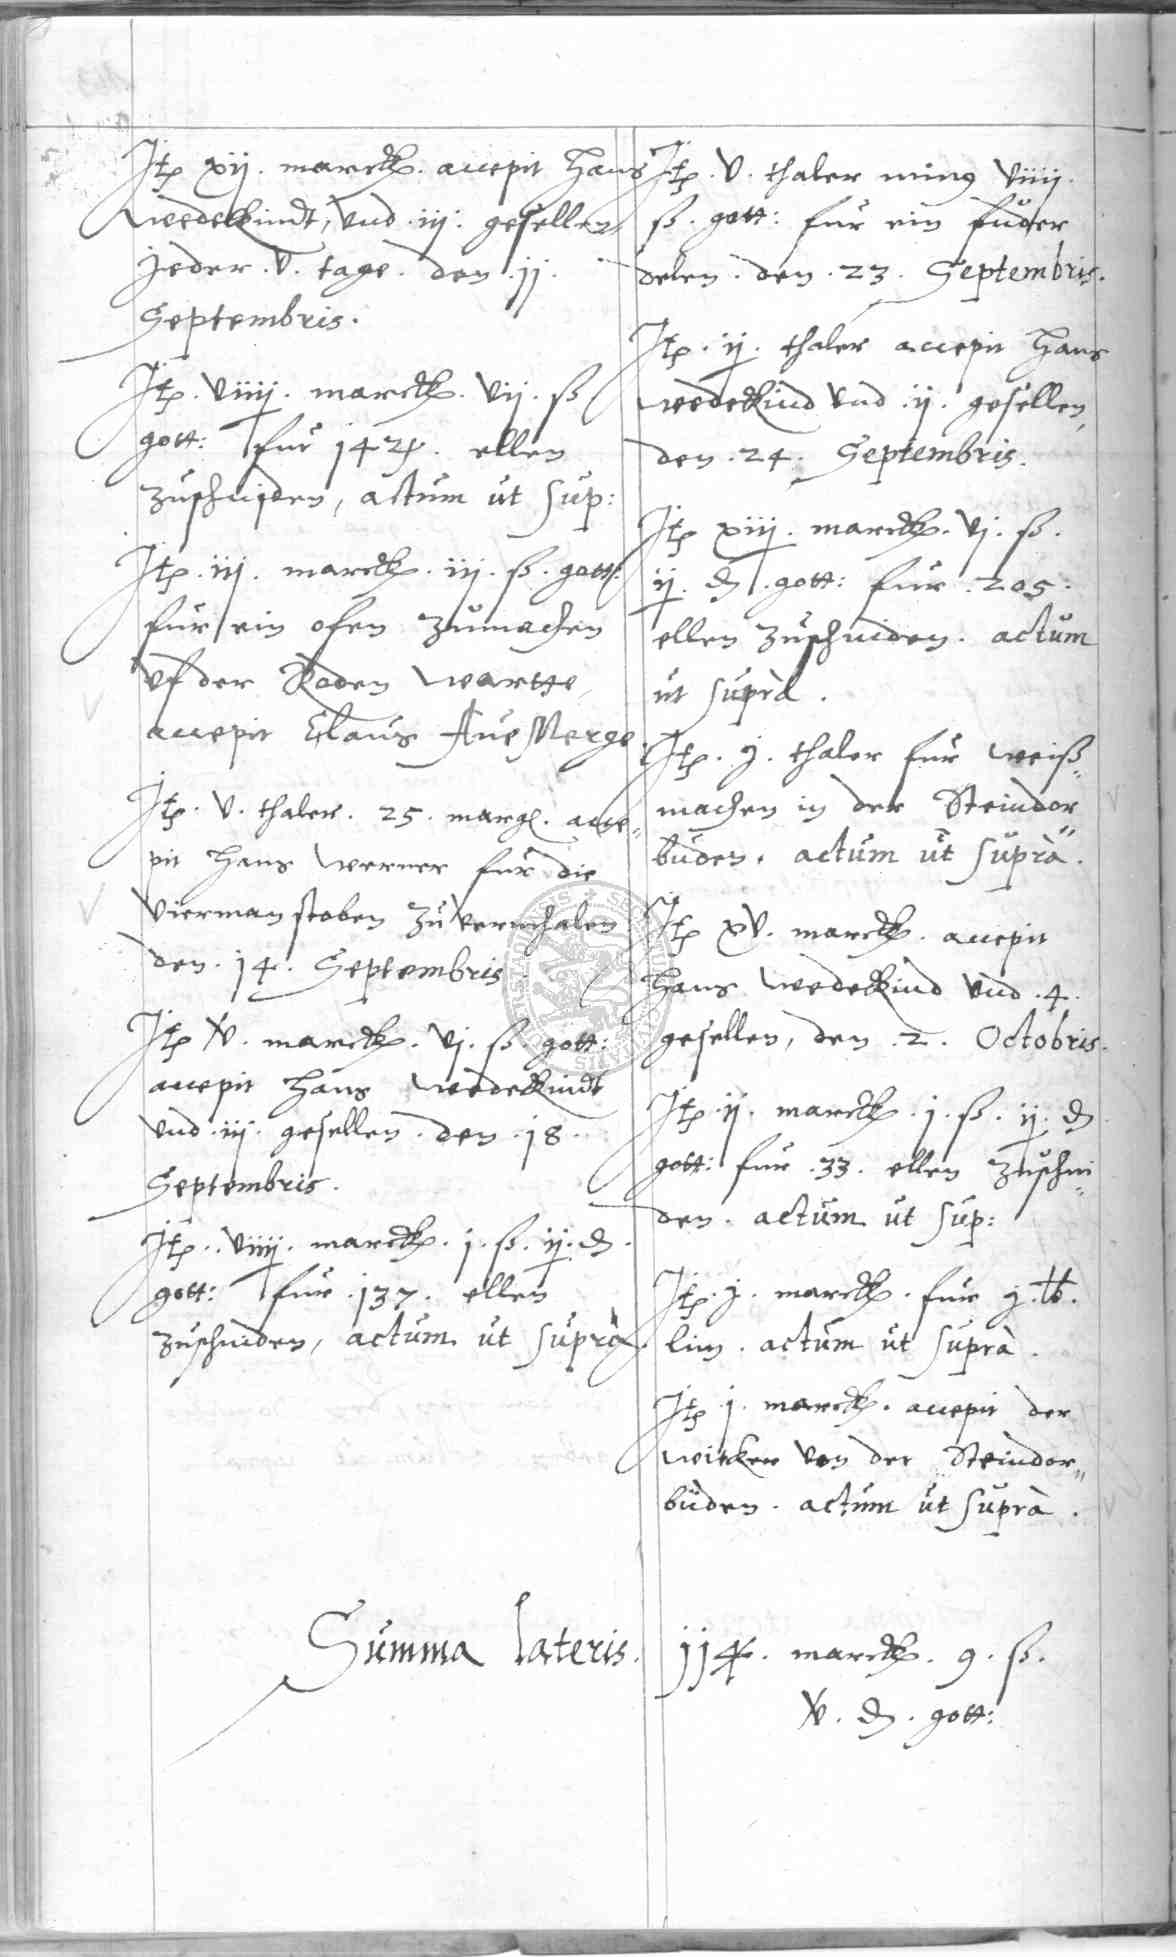 Itp xij. marck. accepit Hans
Wedekindt, vnd .iij. gesellen
Jeder .v. tage. den .jj.
Septembris.
Itp. viiij. marck. vij. ß
gott: fur 142. ellen
zuschniden, actum ut sup:
Itp .iij. marck .iij. ß. gott:
fur ein ofen zumachen
vf der Roden Wartte,
accepit Claus Aue Merge
Itp. v. thaler. 25. marg. acce„
pit Hans Werner fur die
Vierman stoben zu
den .14. Septembris.
Itp v. marck. vj. ß. gott:
accepit Hans Wedekindt
vnd .iij. gesellen. den .18.
Septembris.
Itp .viiij. marck. j. ß. ij. d.
gott: fur .137. ellen
zuschniden, actum ut suprà.
Itp. v. thaler minus viiij.
ß. gott: fur ein fuder
delen. den .23. Septembris.
Itp. ij. thaler accepit Hans
Wedekind vnd .ij. gesellen,
den .24. Septembris.
Itp xiij. marck. vj. ß.
ij. d. gott: fur .205.
ellen zuschniden. actum
ut suprà.
Itp. j. thaler fur weiß„
machen in der Steindor„
buden. actum ut suprà.
Itp xv. marck. accepit
Hans Wedekind vnd .4.
gesellen, den .2. Octobris.
Itp .ij. marck .j. ß. ij. d
gott: fur .33. ellen zuschni„
den. actum ut sup:
Itp. j. marck. fur j. lb.
lim. actum ut suprà.
Itp j. marck. accepit der
witker von der Steindor„
buden. actum ut suprà.
Summa lateris. jj4. marck. 9. ß.
v. d. gott: